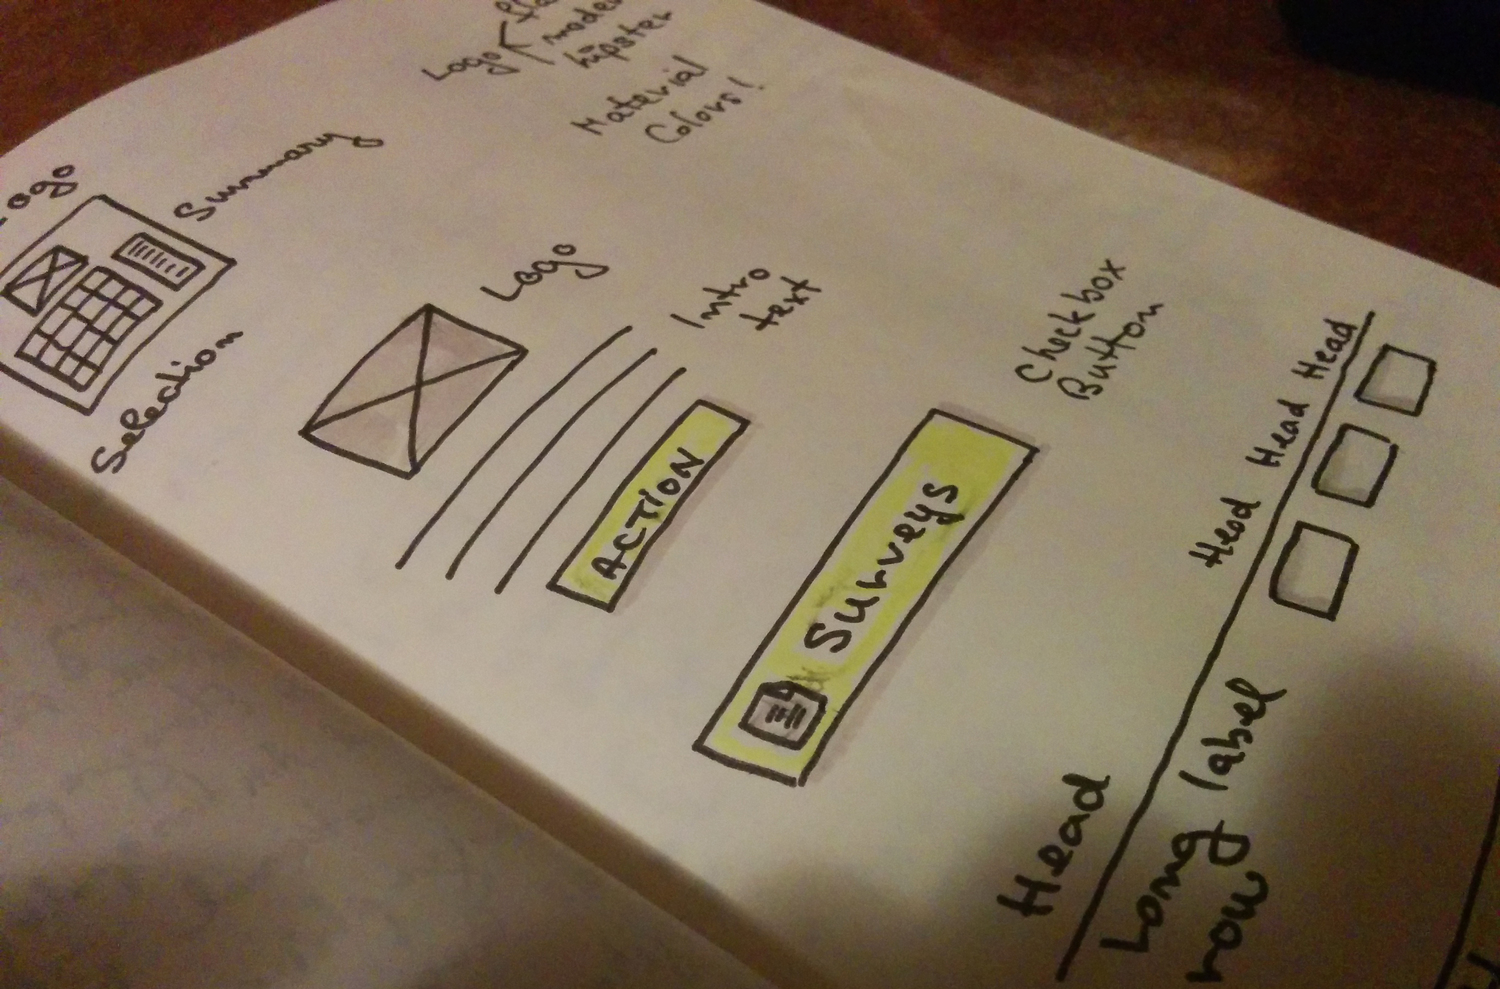 Logo
moder
hipster
Material
Colors!
Logo
Summary
Selection
Logo
Intro
text
ACTION
Checkbox
Button
Surveys
Head
Head
Head
Head
Long label
row